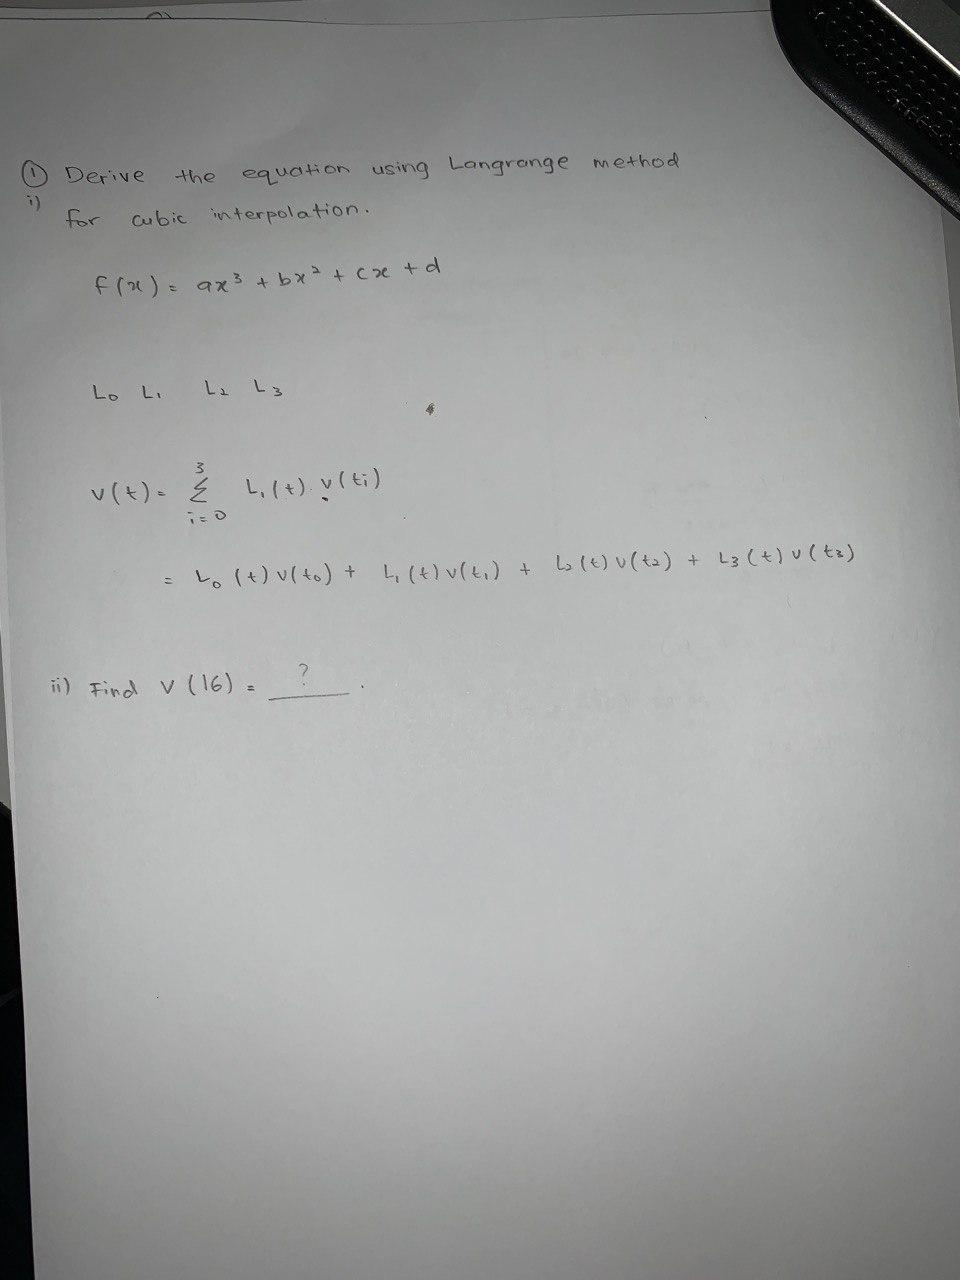 ① Derive the equation using Langrange method
i)
for cubic interpolation.
f(x) = ax³ + bx² + cx + d
L₀ L₁ L₂ L₃
3
v(t) = Σ Lᵢ(t) . v(ti)
i=0
= L₀(t)v(t₀) + L₁(t)v(t₁) + L₂(t)v(t₂) + L₃(t)v(t₃)
ii) Find v(16) = ? .